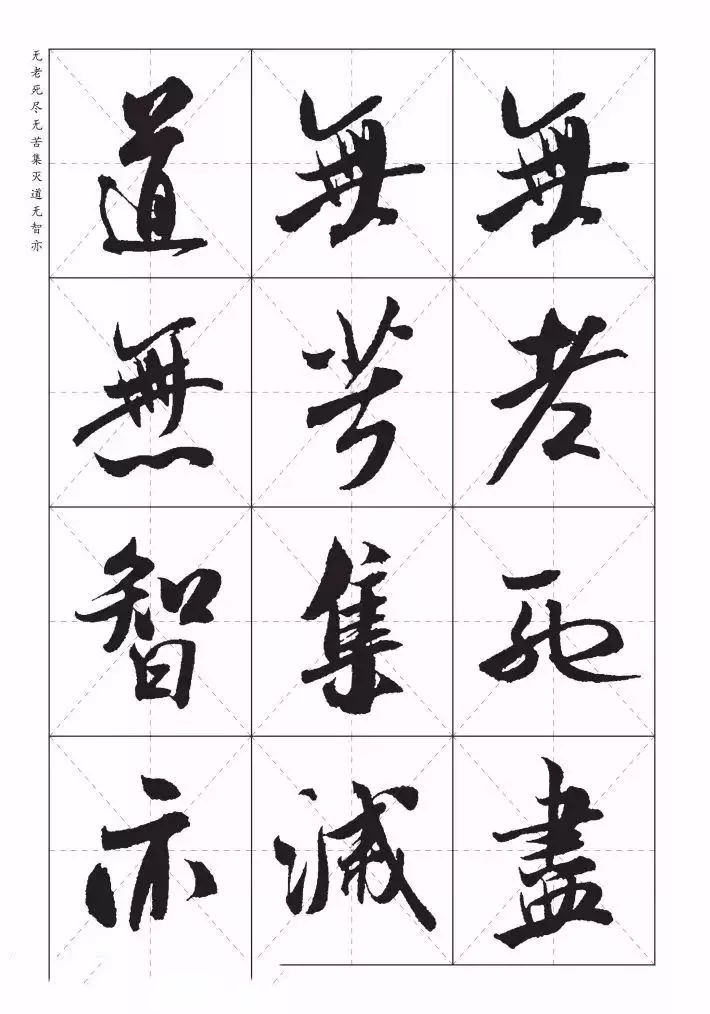 无老死尽无苦集灭道无智亦
無老死盡
無苦集滅
道無智亦